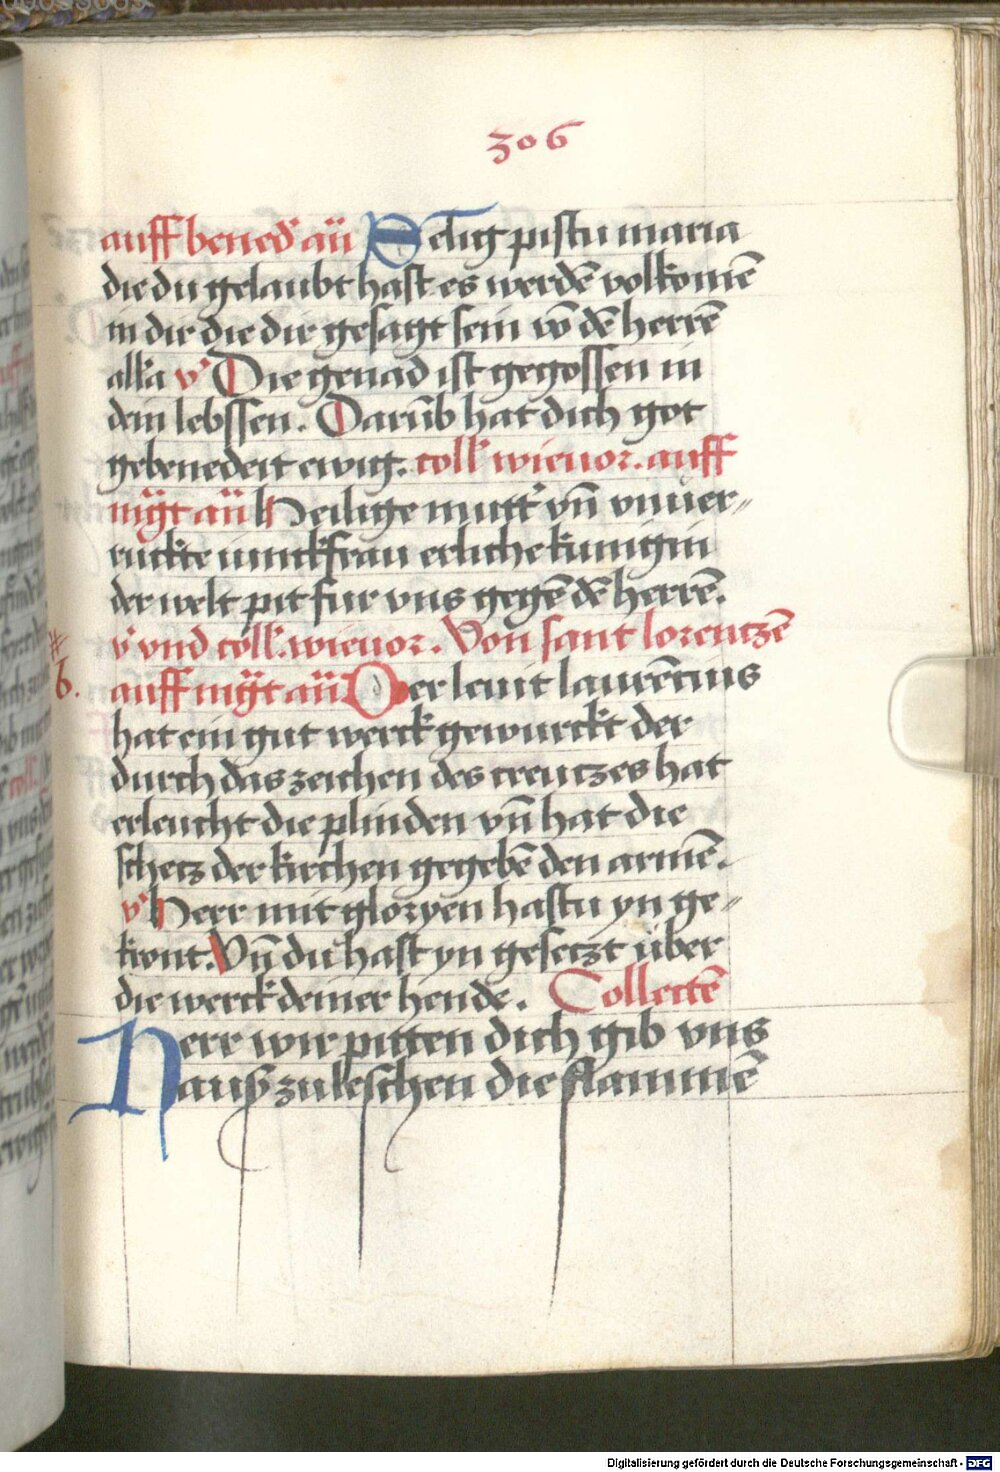 306
auff bened̄ an̄ Selig pistu maria
die du gelaubt hast es werdē volkomē
in dir die dir gesagt sein vō dē herrē
all'a v' Die genad ist gegossen in
dein lebssen. Darūb hat dich got
gebenedeit ewig. coll' wieuor. auff
mg̈t an̄ Heilige mutt' vn̄ vnuer„
ruckte iunckfrau erliche kunigin
der welt pit fur vns gegē dē herrē.
v' vnd coll'. wieuor. Von sant lorentzē
b. auff mg̈t an̄ Der leuit laurētius
hat ein gut werck gewurckt der
durch das zeichen des creutzes hat
erleucht die plinden vn̄ hat die
schetz der kirchen gegebē den armē.
v' Herr mit gloryen hastu yn ge„
kront. Vn̄ du hast yn gesetzt über
die werck deiner hende. Collectē
Herr wir pitten dich gib vns
auß zuleschen die flammē
Digitalisierung gefördert durch die Deutsche Forschungsgemeinschaft - DFG